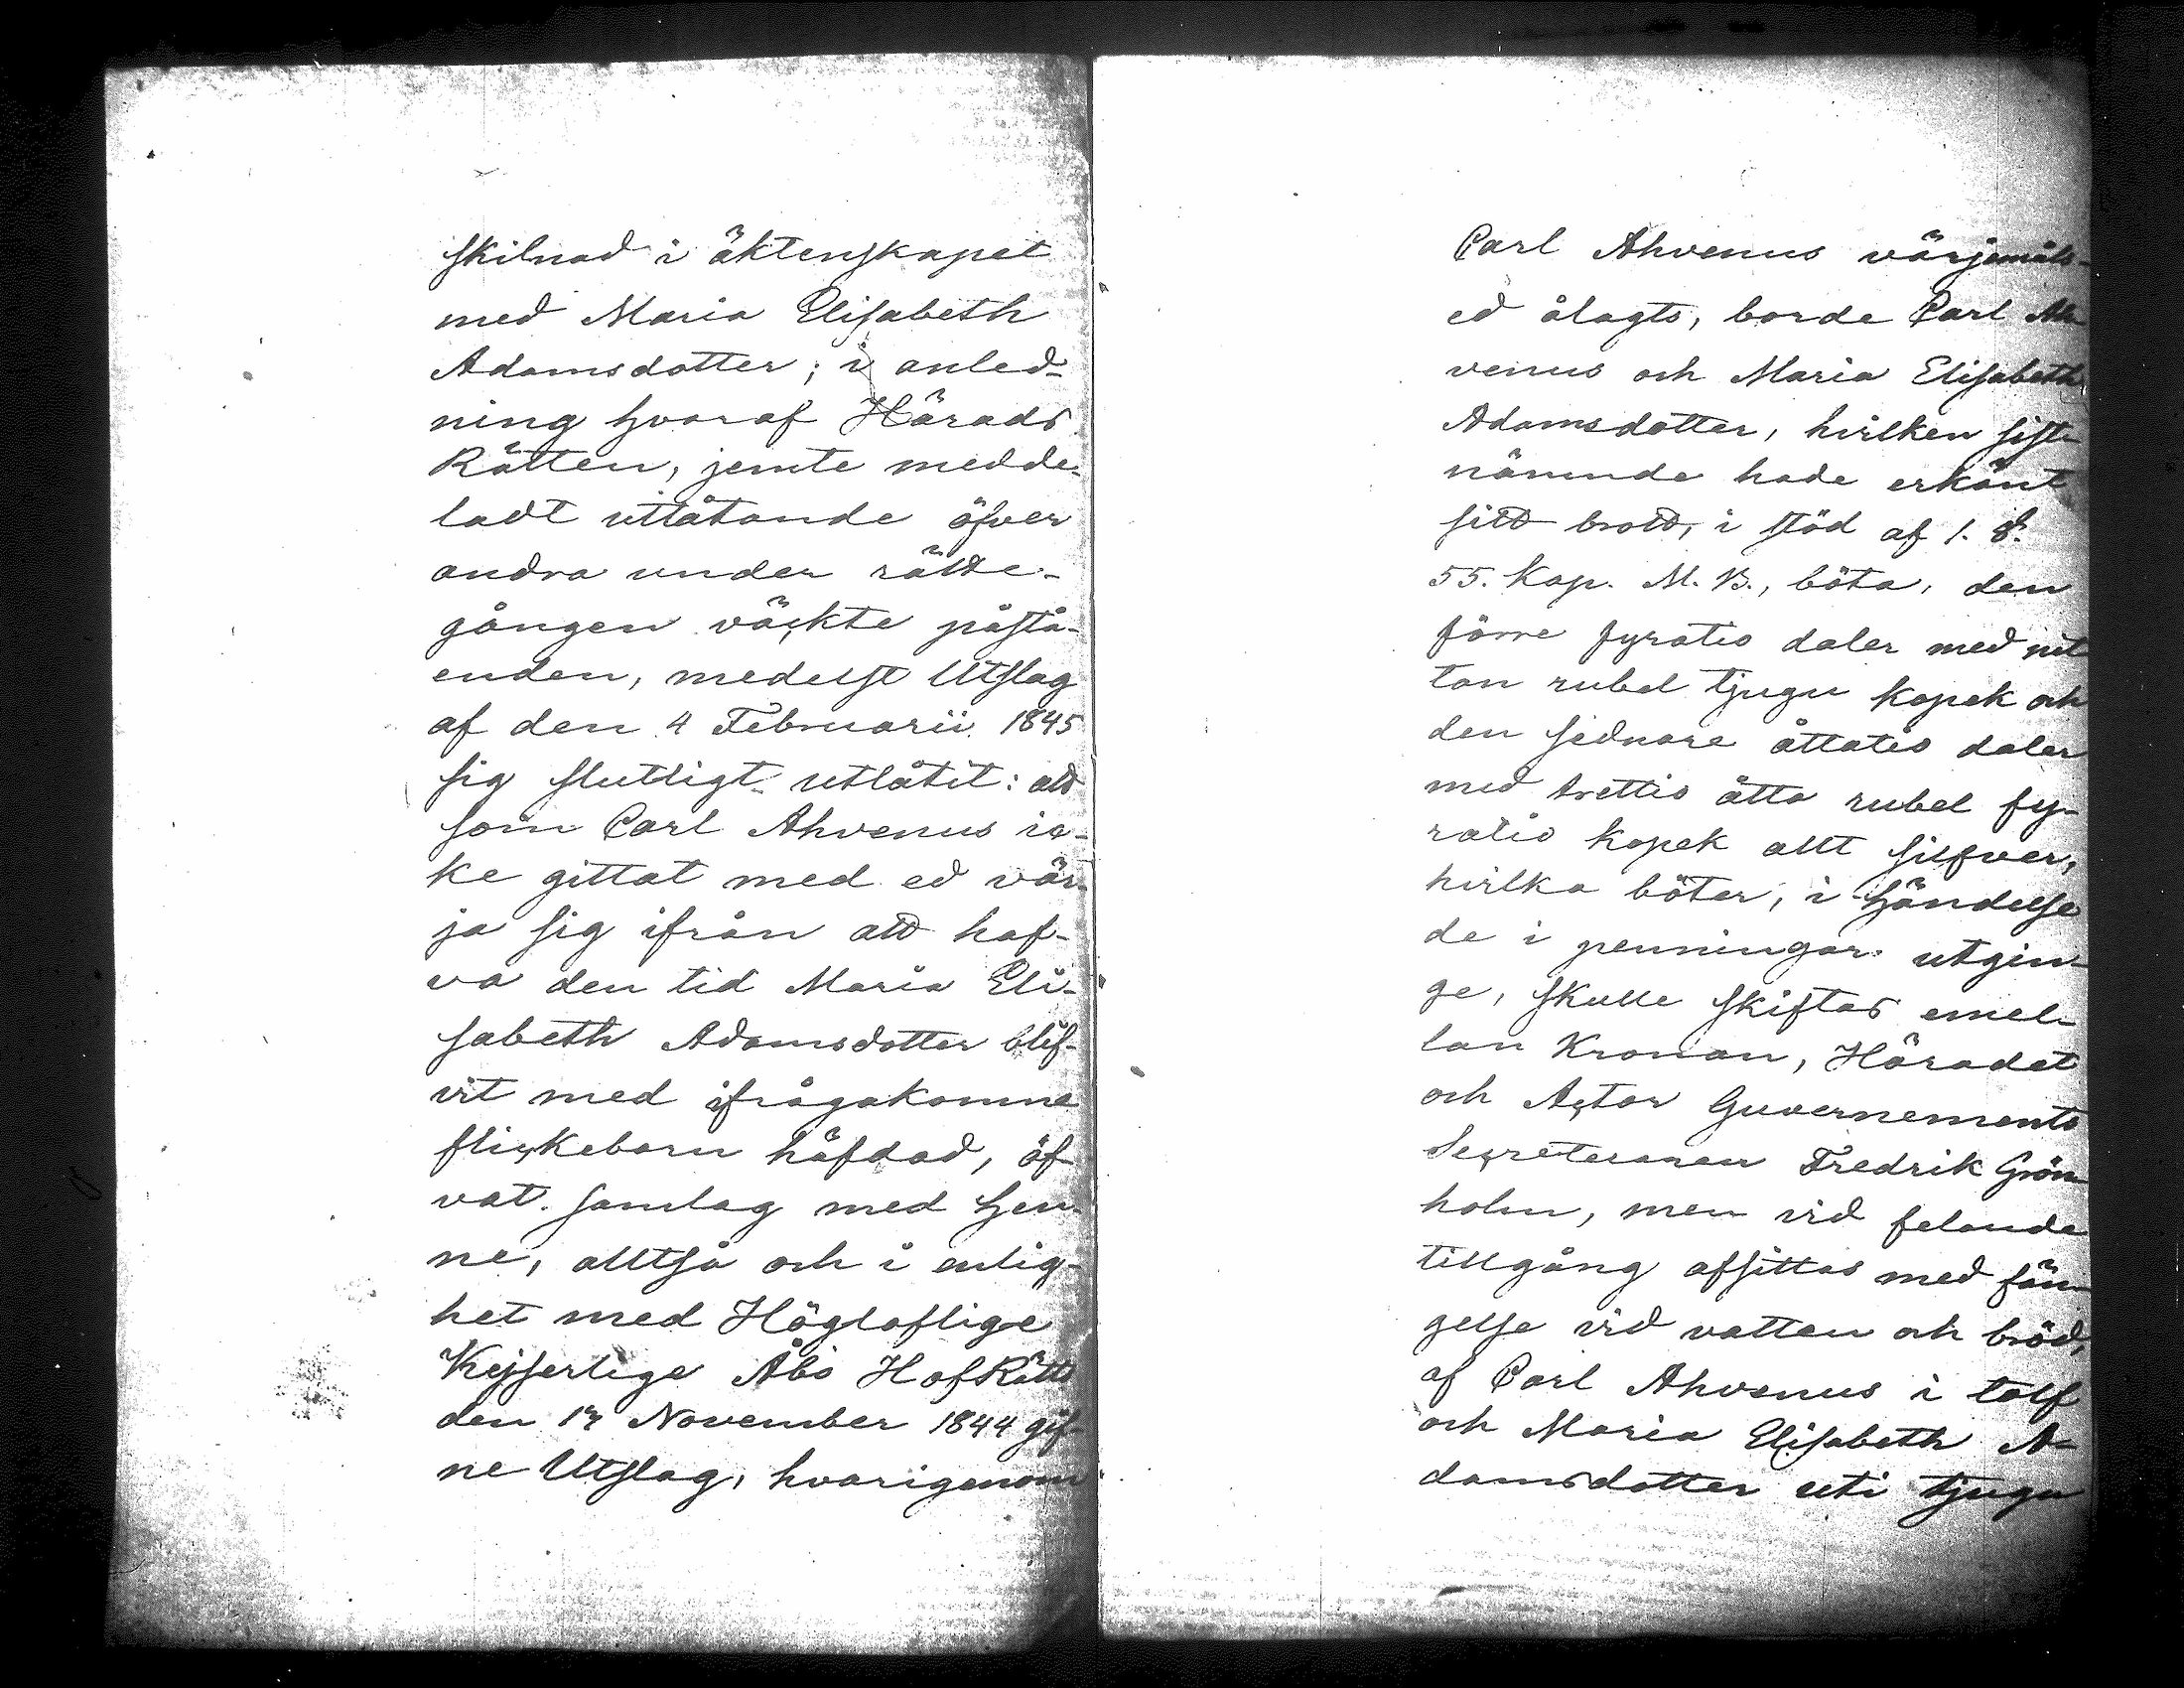 skilnad i äktenskapet
med Maria Elisabeth
Adamsdotter; i anled-
ning hvaraf Härads
Rätten, jemte medde-
ladt utlåtande öfver
andra under rätte-
gången väckte påstå-
enden, medelst Utslag
af den 4 Februarii 1845
sig slutligt utlåtit: att
som Carl Ahvenus ic-
ke gittat med ed vär-
ja sig ifrån att haf-
va den tid Maria Eli-
sabeth Adamsdotter blif-
vit med ifrågakomne
flickebarn häfdad, öf-
vat samlag med hen-
ne, alltså och i enlig-
het med Högloflige
Kejserlige Åbo HofRätts
den November 1844 gif-
ne Utslag, hvarigenom
Carl Ahvenus värjemåls-
ed ålagts, borde Carl Ah-
venus och Maria Elisabeth
Adamsdotter, hvilken sist-
nämnde hade erkänt
sitt brott, i stöd af 1. §.
55. Kap. M. B., böta, den
förre fyratio daler med nit-
ton rubel tjugu kopek och
den sednare åttatio daler
med trettio åtta rubel fy-
ratio kopek allt silfver,
hvilka böter, i händelse
de i penningar utgin-
ge, skulle skiftas emel-
lan Kronan, Häradet
och Actor Guvernements
Secreteraren Fredrik Grön-
holm, men vid felande
tillgång afsittas med fän-
gelse vid vatten och bröd,
af Carl Ahvenus i tolf
och Maria Elisabeth A-
damsdotter uti tjugu